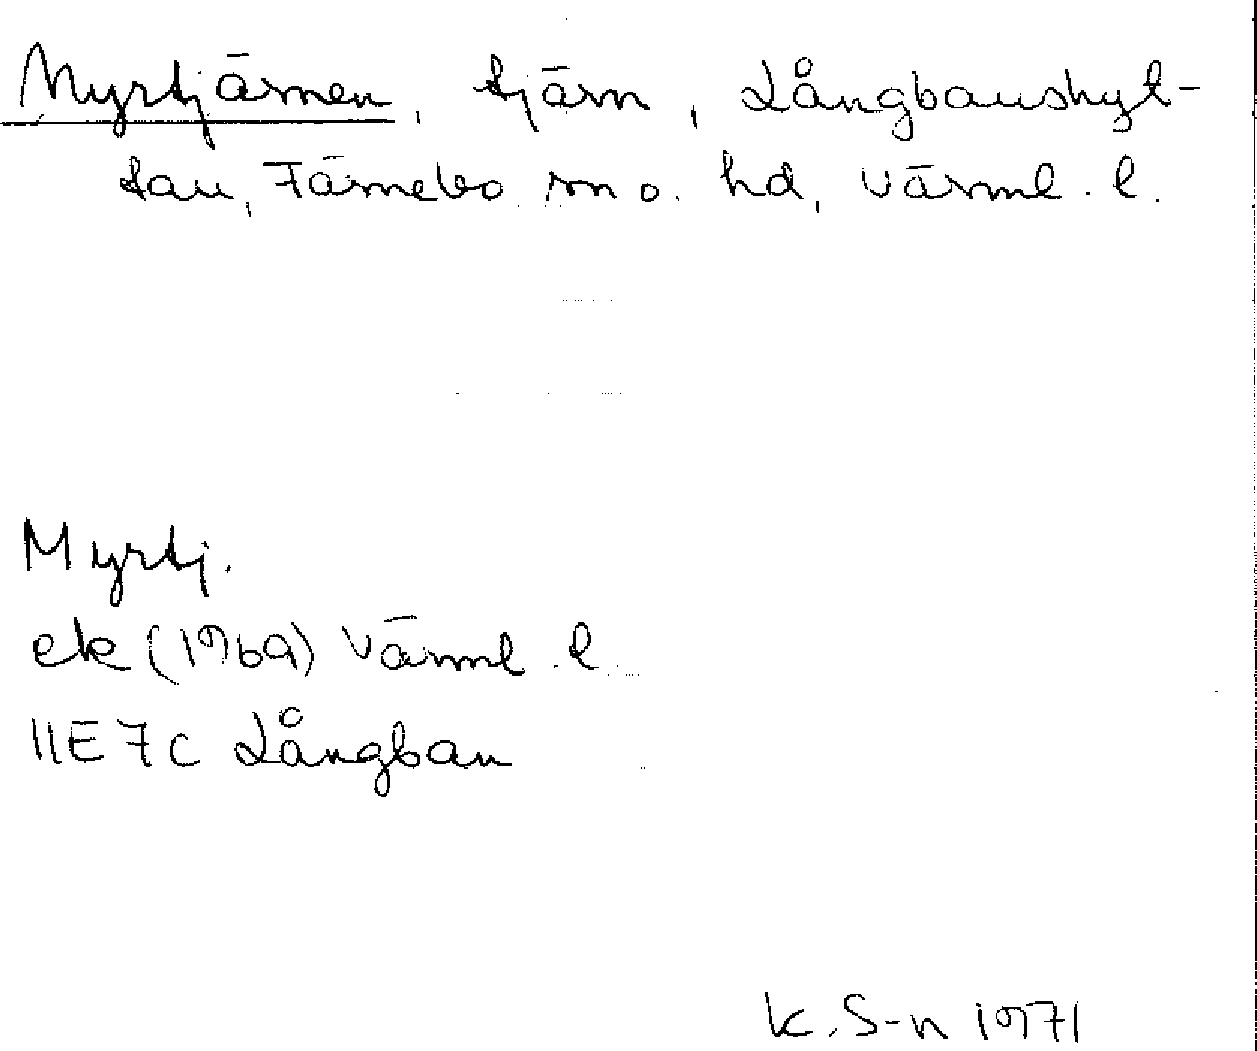 Myrtjärnen, tjärn, Långbanshyt-
tan, Färnebo sn o. hd, Värml. l.
Myrtj.
ek (1969) Värml. l.
11E 7c Långban
K. S-n 1971